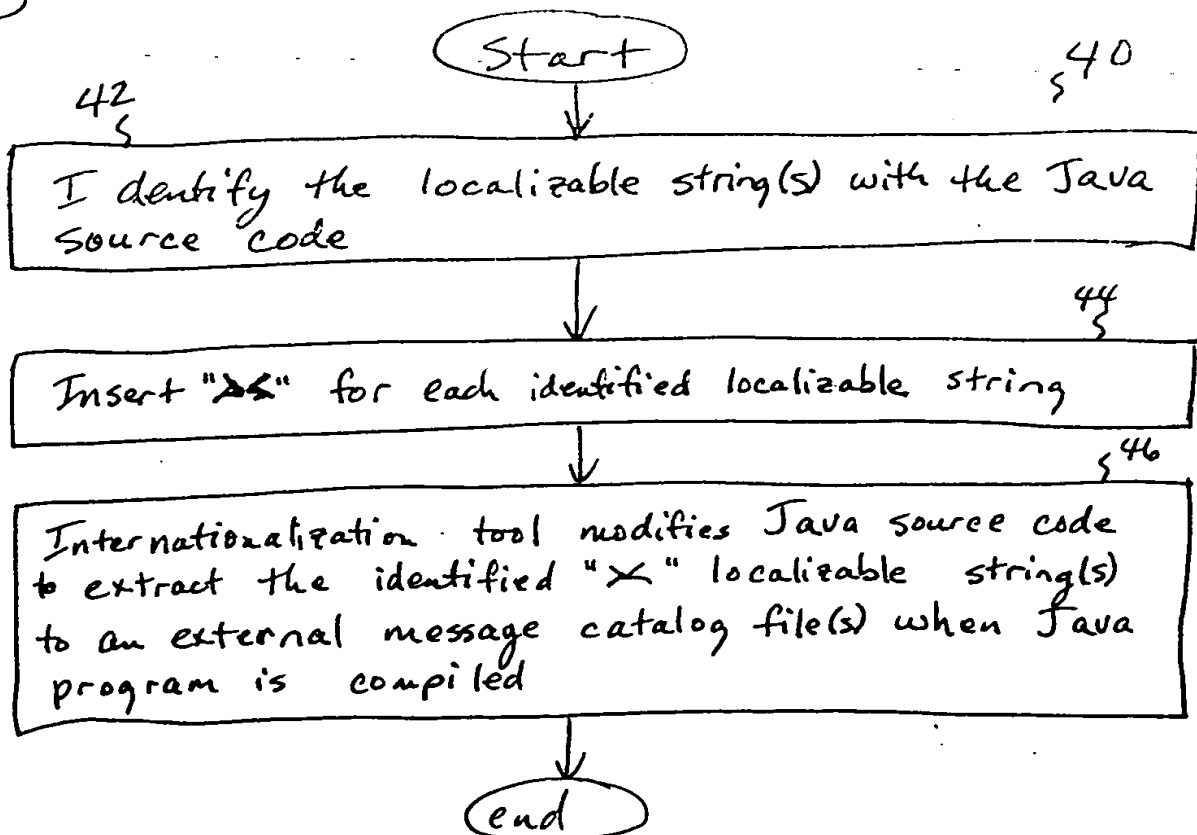 Start
40
42
Identify the localizable string(s) with the Java
source code
44
Insert "X" for each identified localizable string
46
Internationalization tool modifies Java source code
to extract the identified "X" localizable string(s)
to an external message catalog file(s) when Java
program is compiled
end